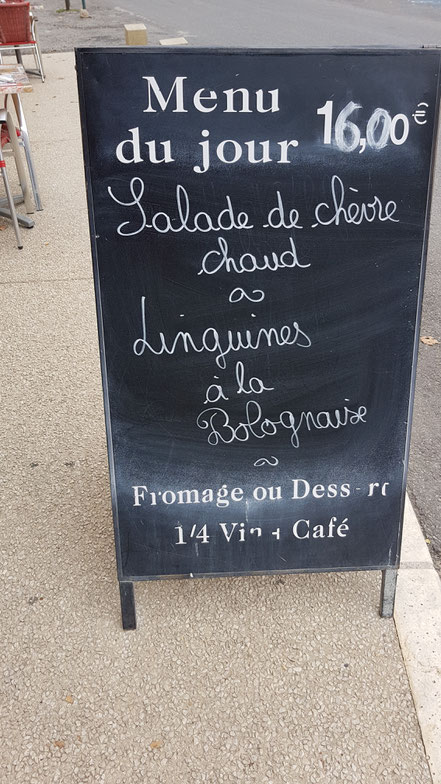 Menu
du jour 16,00
Salade de chèvre
chaud
Linguines
à la
Bolognaise
Fromage ou Dessert
1/4 Vin + Café